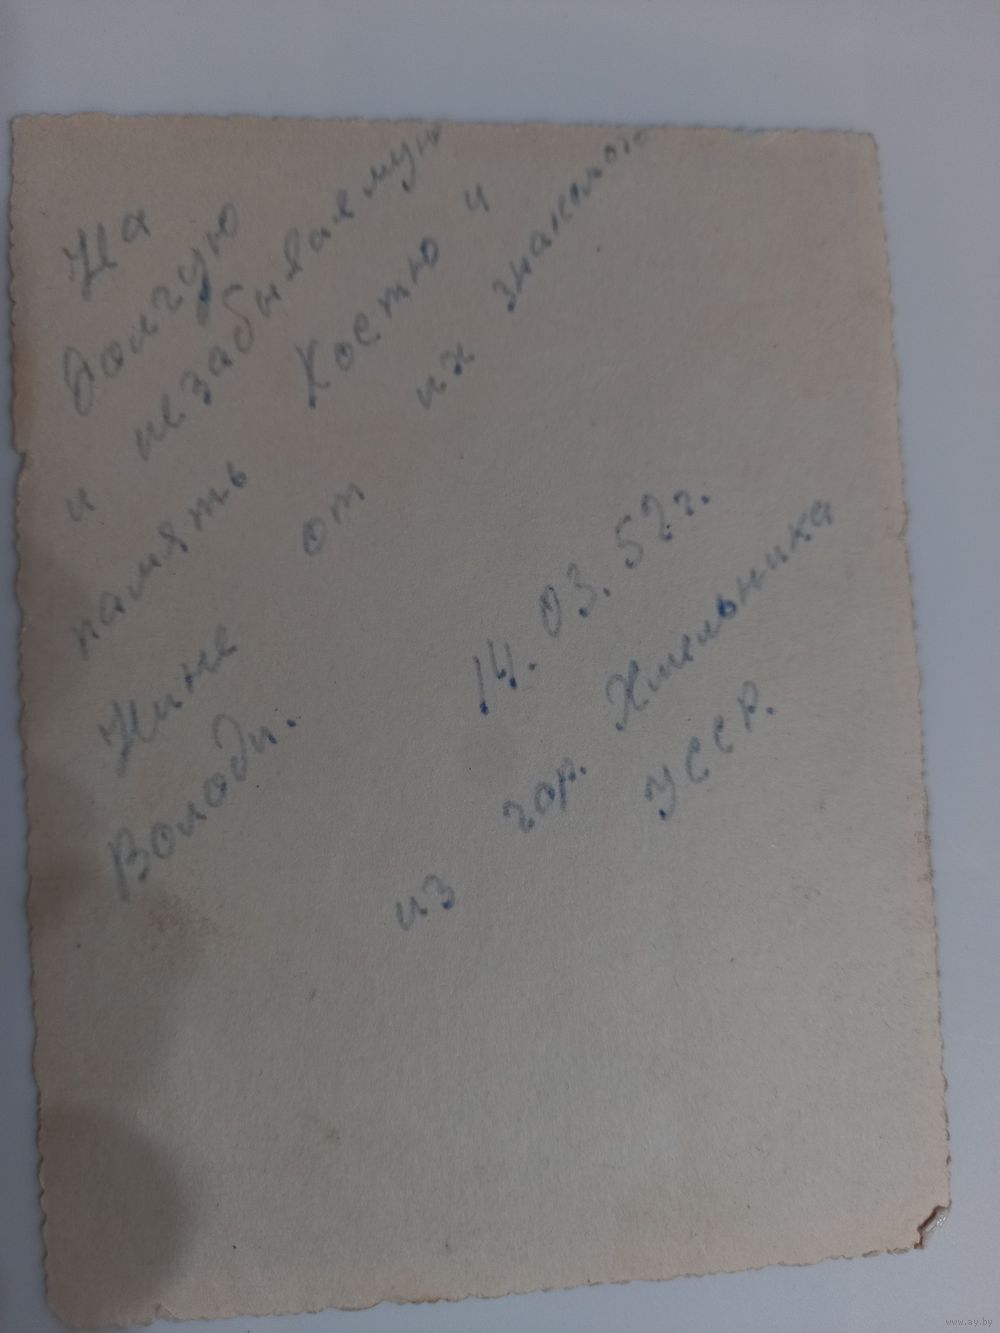 На
долгую
и незабываемую
память Костю и
Нине от их знакомого
Володи.
14.03.52г.
из гор. Хмельника
УССР.
www.ay.by